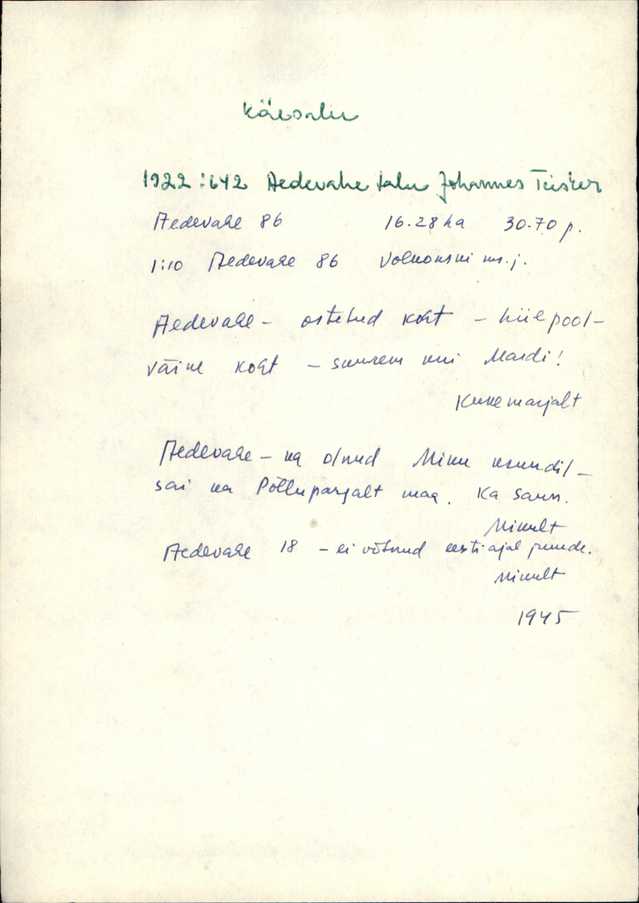 Käesalu
1922:642 Aedevahe talu Johannes Teisker
Aedevahe 86 16.28 ha 30.70 p.
1:10 Aedevahe 86 Volkonski m.j.
Aedevahe - ostetud koht -
koht - suurem kui Mardi!
Kukemarjalt
Aedevahe - ka olnud Miku
sai ka Põllupapjalt maa. Ka saun.
Mikult
Aedevahe 18 - ei võtnud eesti ajal juurde.
Mikult
1945